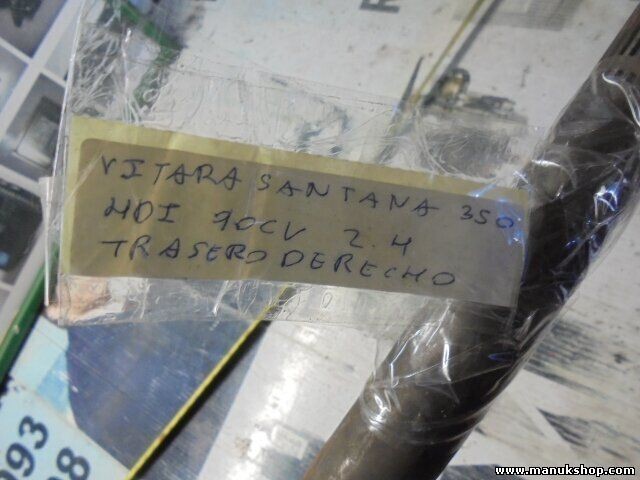 VITARA SANTANA 350
HDI 90CV 2.H
TRASERO DERECHO
993
08
R
www.manukshop.com